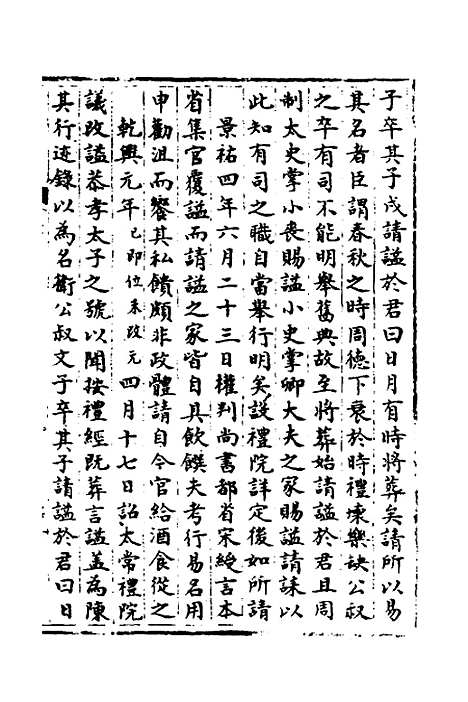 子卒其子戍請謚於君曰日月有時將葬矣請所以易
其名者臣謂春秋之時周德下衰於時禮壞樂缺公叔
之卒有司不能明舉舊典故至將葬始請謚於君且周
制太史掌小喪賜謚小史掌卿大夫之家賜謚請誄以
此知有司之職自當舉行明矣詔禮院詳定後如所請
景祐四年六月二十三日權判尚書都省宋綬言本
省集官覆謚而請謚之家皆自具飲饌夫考行易名用
申勸沮而饗其私饋頗非政體請自今官給酒食從之
乾興元年已即位未改元四月十七日詔太常禮院
議改謚恭孝太子之號以聞按禮經既葬言謚蓋為陳
其行迹錄以為名衛公叔文子卒其子請謚於君曰日